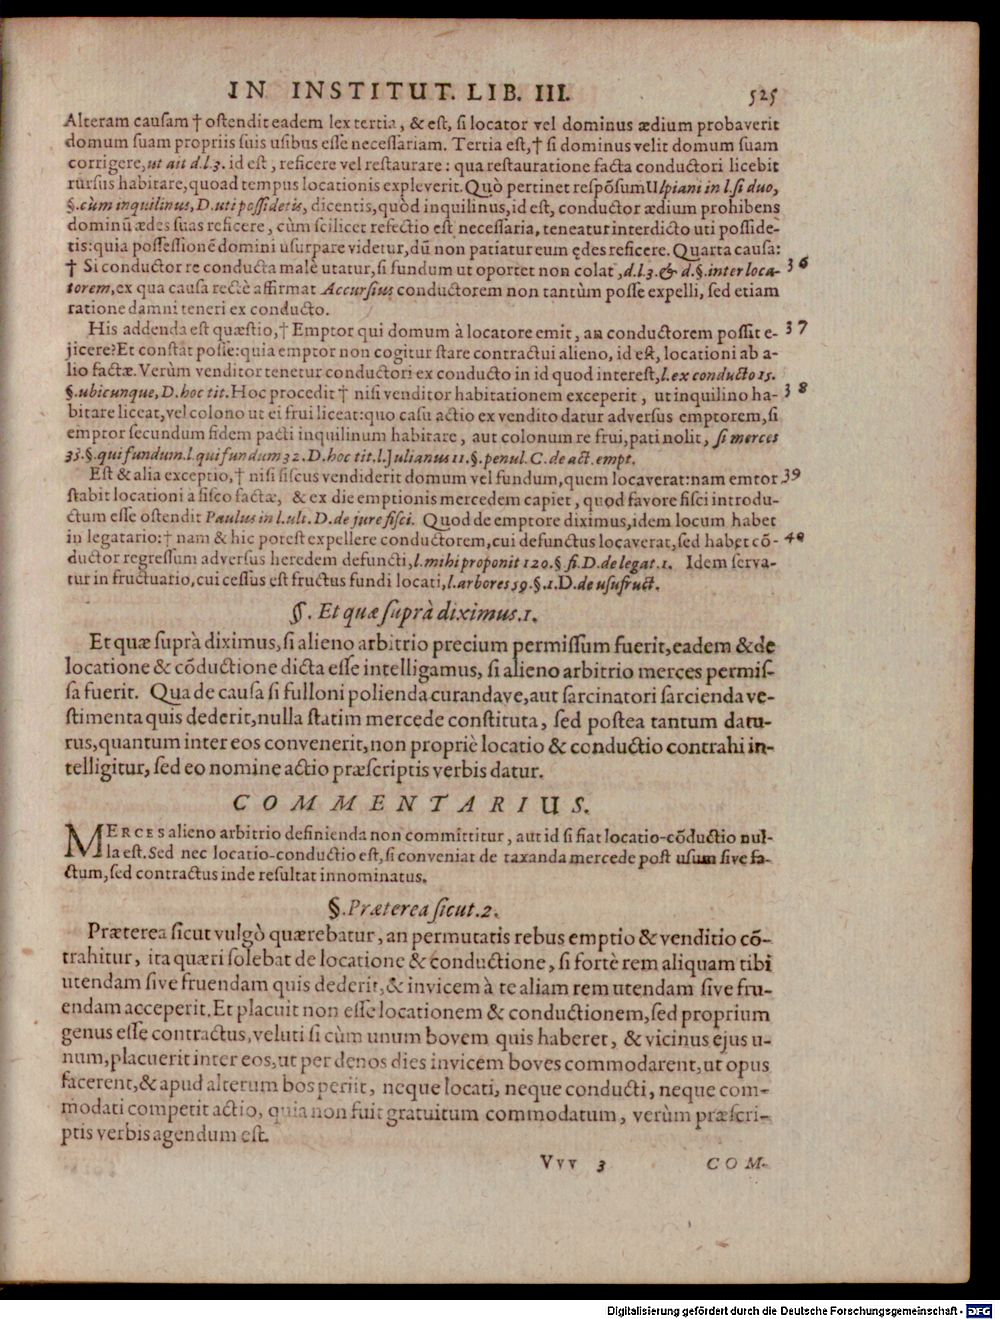 IN INSTITUT. LIB. III. 525
Alteram causam † ostendit eadem lex tertia, & est, si locator vel dominus ædium probaverit
domum suam propriis suis usibus esse necessariam. Tertia est, † si dominus velit domum suam
corrigere, ut ait d.l.3. id est, reficere vel restaurare: qua restauratione facta conductori licebit
rursus habitare, quoad tempus locationis expleverit. Quò pertinet respõsum Ulpiani in l.si duo,
§.cùm inquilinus, D. uti possidetis, dicentis, quòd inquilinus, id est, conductor ædium prohibens
dominũ ædes suas reficere, cùm scilicet refectio est necessaria, teneatur interdicto uti posside-
tis: quia possessionẽ domini usurpare videtur, dũ non patiatur eum ędes reficere. Quarta causa:
† Si conductor re conducta malè utatur, si fundum ut oportet non colat, d.l.3. & d.§.inter loca- 36
torem, ex qua causa rectè affirmat Accursius conductorem non tantùm posse expelli, sed etiam
ratione damni teneri ex conducto.
His addenda est quæstio, † Emptor qui domum à locatore emit, an conductorem possit e- 37
jicere? Et constat posse: quia emptor non cogitur stare contractui alieno, id est, locationi ab a-
lio factæ. Verùm venditor tenetur conductori ex conducto in id quod interest, l.ex conducto 15.
§.ubicunque, D. hoc tit. Hoc procedit † nisi venditor habitationem exceperit, ut inquilino ha- 38
bitare liceat, vel colono ut ei frui liceat: quo casu actio ex vendito datur adversus emptorem, si
emptor secundum fidem pacti inquilinum habitare, aut colonum re frui, pati nolit, si merces
35.§.qui fundum.l.qui fundum 32.D.hoc tit.l.Julianus 11.§.penul.C.de act.empt.
Est & alia exceptio, † nisi fiscus vendiderit domum vel fundum, quem locaverat: nam emtor 39
stabit locationi à fisco factæ, & ex die emptionis mercedem capiet, quod favore fisci introdu-
ctum esse ostendit Paulus in l.ult.D.de jure fisci. Quod de emptore diximus, idem locum habet
in legatario: † nam & hic potest expellere conductorem, cui defunctus locaverat, sed habet cõ- 40
ductor regressum adversus heredem defuncti, l.mihi proponit 120.§ fi.D.de legat.1. Idem serva-
tur in fructuario, cui cessus est fructus fundi locati, l.arbores 59.§.1.D.de usufruct.
§. Et quæ suprà diximus.1.
Et quæ suprà diximus, si alieno arbitrio precium permissum fuerit, eadem & de
locatione & cõductione dicta esse intelligamus, si alieno arbitrio merces permis-
sa fuerit. Qua de causa si fulloni polienda curandave, aut sarcinatori sarcienda ve-
stimenta quis dederit, nulla statim mercede constituta, sed postea tantum datu-
rus, quantum inter eos convenerit, non propriè locatio & conductio contrahi in-
telligitur, sed eo nomine actio præscriptis verbis datur.
COMMENTARIUS.
MERCES alieno arbitrio definienda non committitur, aut id si fiat locatio-cõductio nul-
la est. Sed nec locatio-conductio est, si conveniat de taxanda mercede post usum sive fa-
ctum, sed contractus inde resultat innominatus.
§. Præterea sicut.2.
Præterea sicut vulgò quærebatur, an permutatis rebus emptio & venditio cõ-
trahitur, ita quæri solebat de locatione & conductione, si fortè rem aliquam tibi
utendam sive fruendam quis dederit, & invicem à te aliam rem utendam sive fru-
endam acceperit. Et placuit non esse locationem & conductionem, sed proprium
genus esse contractus, veluti si cùm unum bovem quis haberet, & vicinus ejus u-
num, placuerit inter eos, ut per denos dies invicem boves commodarent, ut opus
facerent, & apud alterum bos periit, neque locati, neque conducti, neque com-
modati competit actio, quia non fuit gratuitum commodatum, verùm præscri-
ptis verbis agendum est.
Vvv 3 COM-
Digitalisierung gefördert durch die Deutsche Forschungsgemeinschaft - DFG